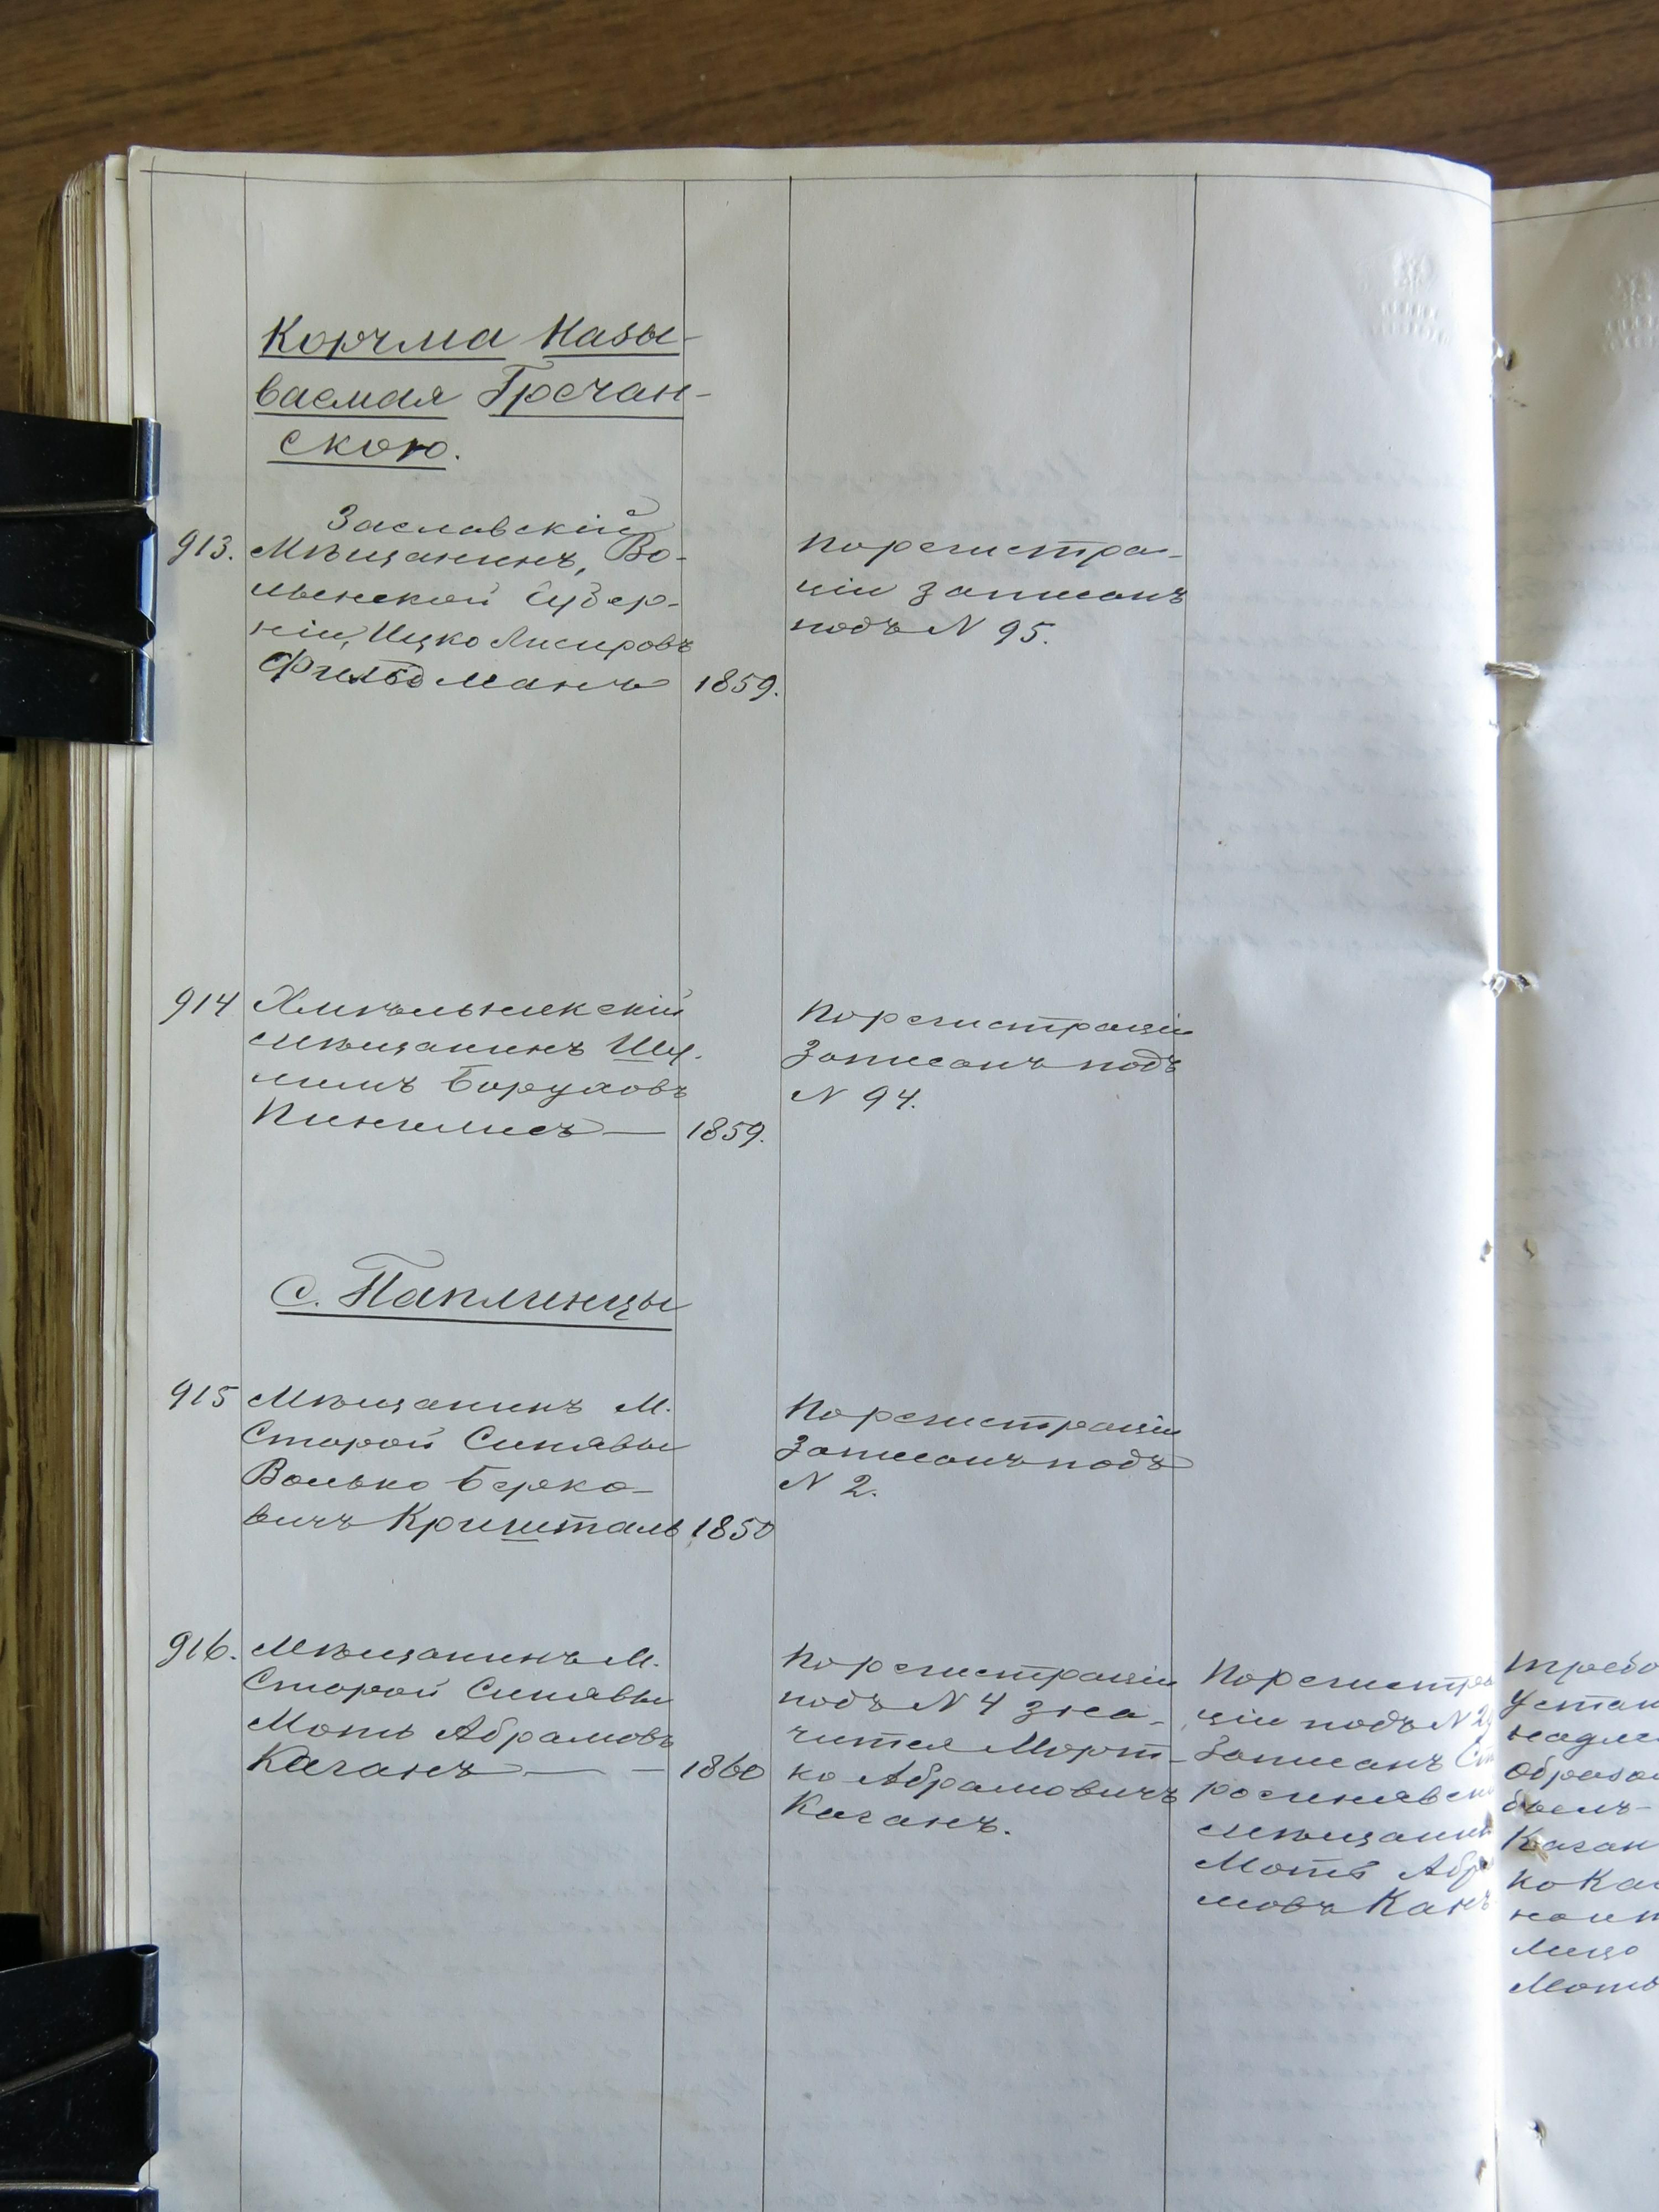 Корчма Назы-
ваемая Гречан-
скою.
Заславскій
913. Мѣщанинъ, Во-
лынской Губер-
ніи, Ицко Лисировъ
Фильдманъ 1859.
По регистра-
ціи записанъ
подъ N 95.
914 Хмѣльникскій
мѣщанинъ Шу-
лимъ Боруховъ
Пинзлисъ — 1859.
По регистраціи
записанъ подъ
N 94.
с. Паплинцы
915 Мѣщанинъ М.
Старой Синявы
Волько Берко-
вичъ Кришталь 1850
По регистраціи
записанъ подъ
N 2.
916. Мѣщанинъ М.
Старой Синявы
Моть Абрамовъ
Каганъ — — 1860
По регистраціи
подъ N 4 зна-
чится Морт-
ко Абрамовичъ
Каганъ.
По регистра
ціи подъ N 2
записанъ Ст
росинявск
мѣщанин
Моть Абр
мовъ Канъ
требо
Устан
надле
образо
бымъ
Каган
ко Ка
лицо
Моть